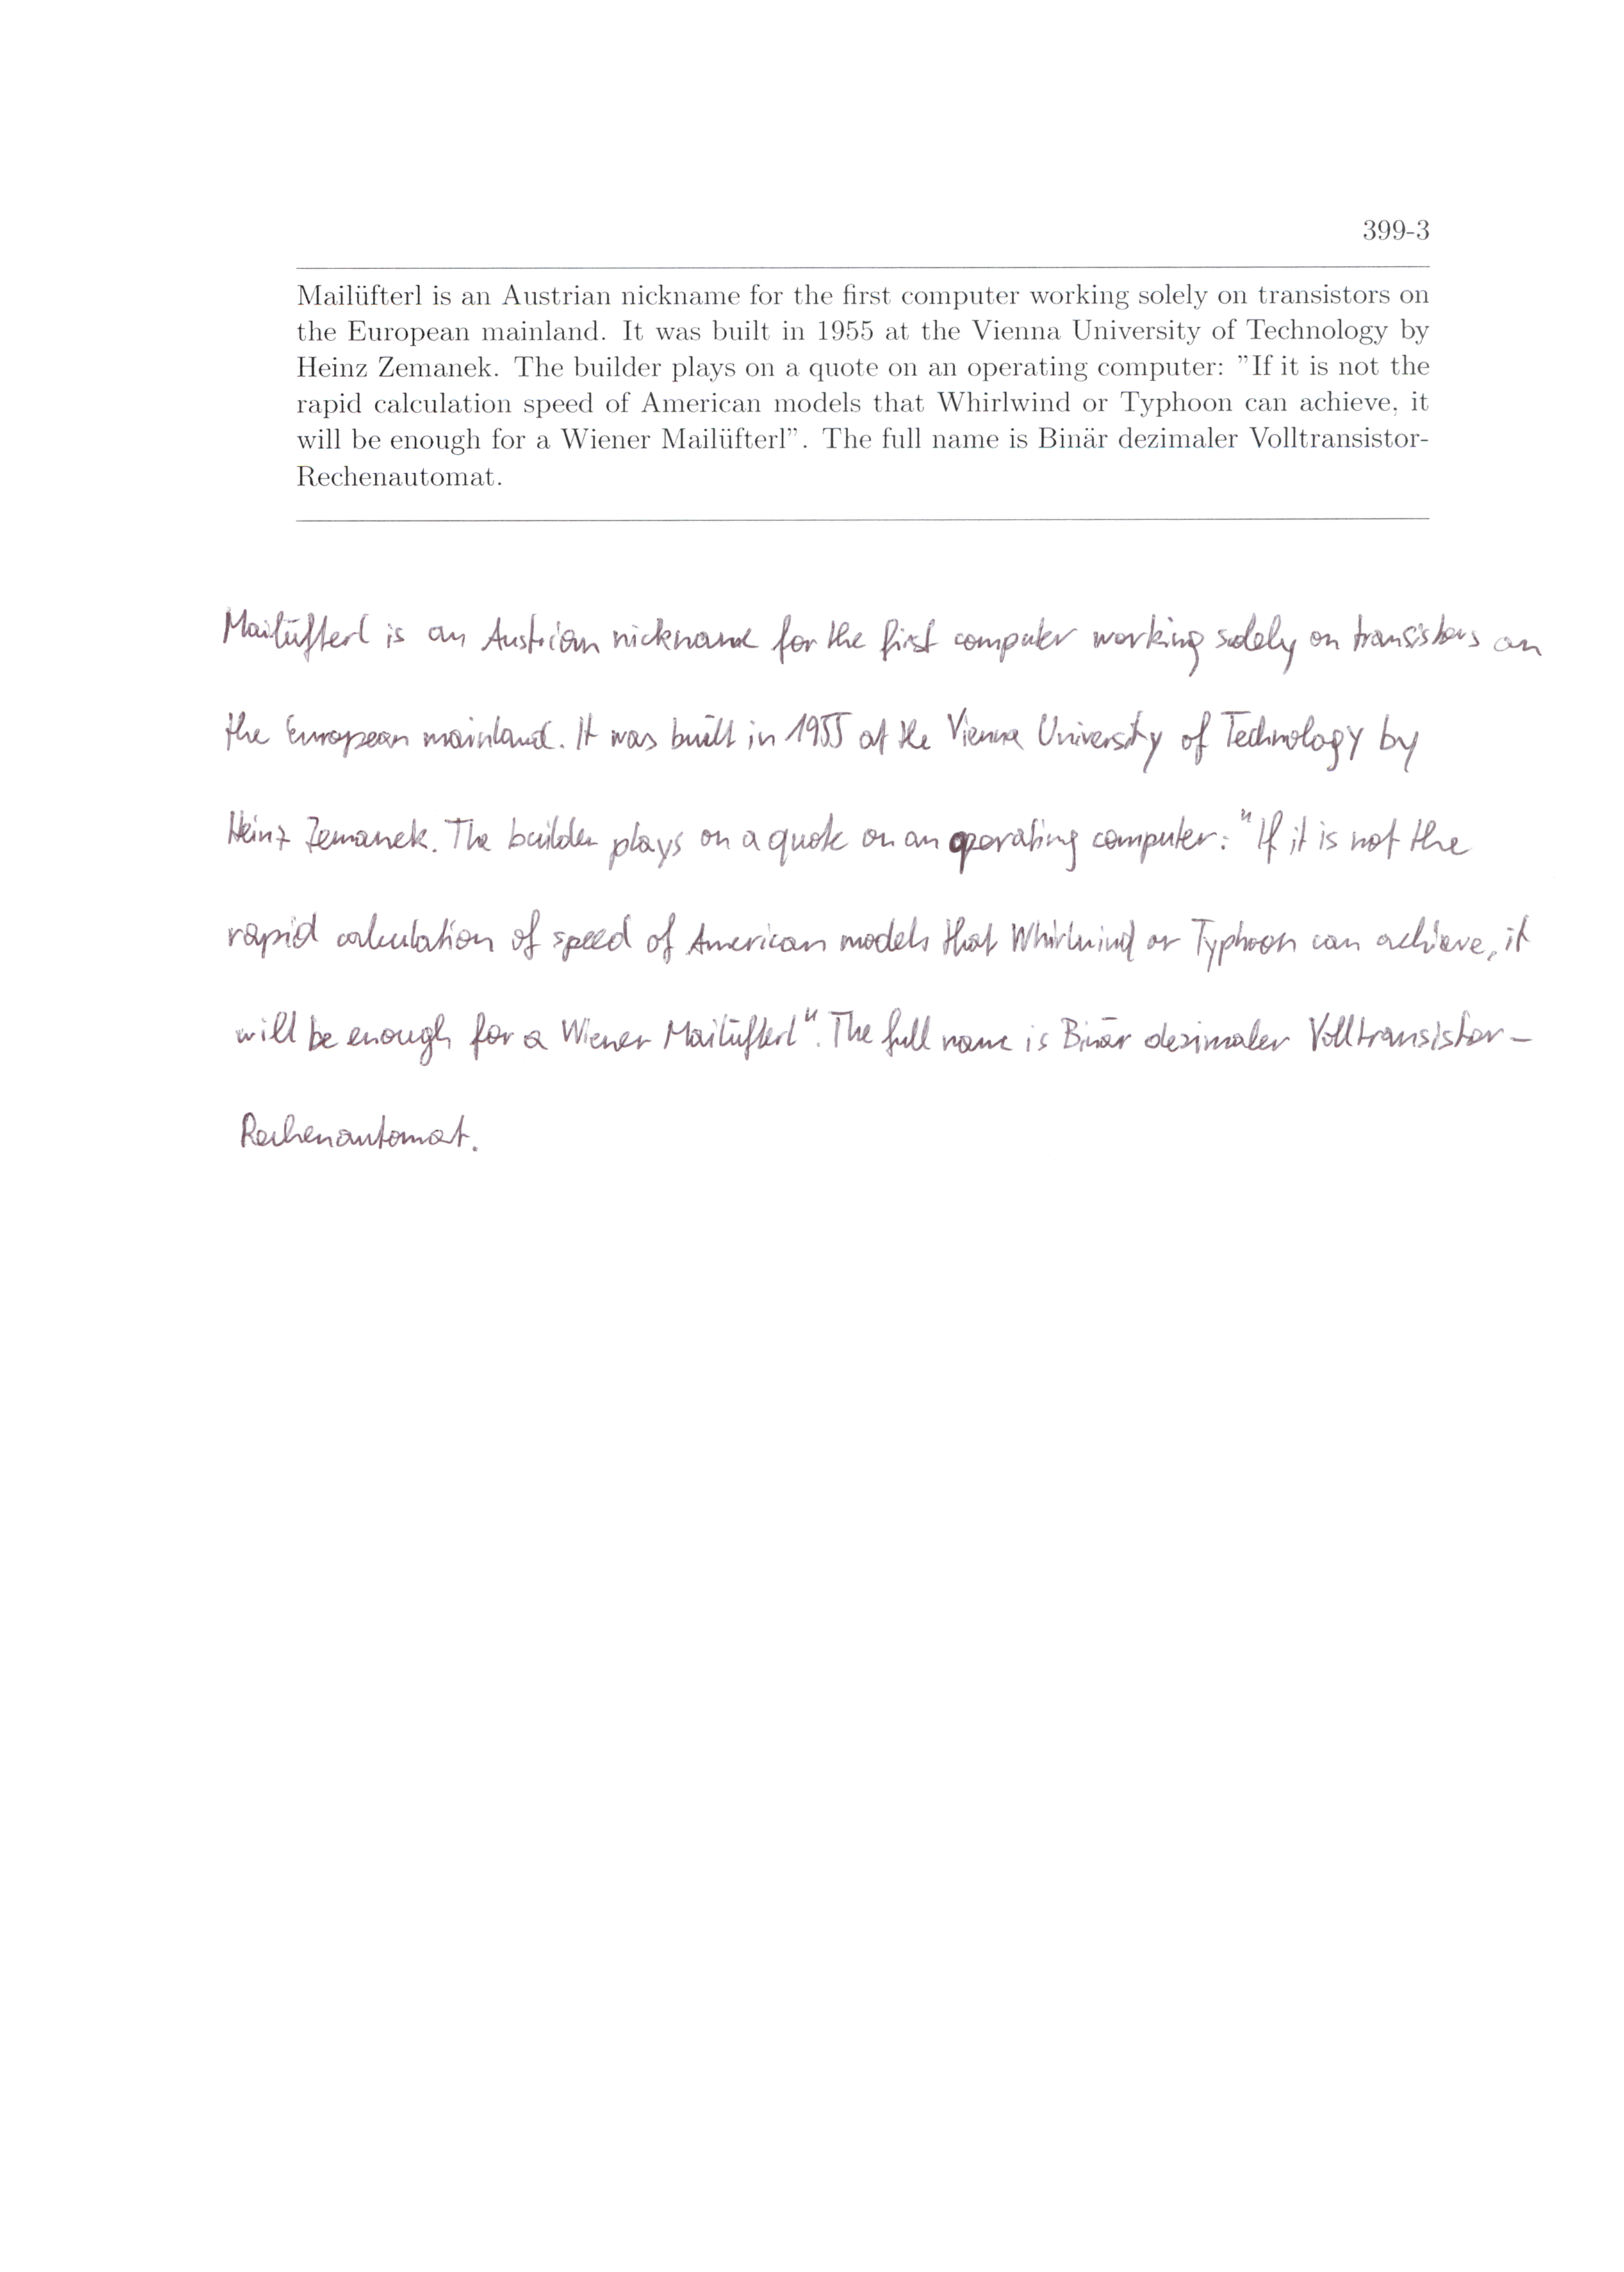 399-3
Mailüfterl is an Austrian nickname for the first computer working solely on transistors on
the European mainland. It was built in 1955 at the Vienna University of Technology by
Heinz Zemanek. The builder plays on a quote on an operating computer: ”If it is not the
rapid calculation speed of American models that Whirlwind or Typhoon can achieve, it
will be enough for a Wiener Mailüfterl”. The full name is Binär dezimaler Volltransistor-
Rechenautomat.
Mailüfterl is an Austrian nickname for the first computer working solely on transistors on
the European mainland. It was built in 1955 at the Vienna University of Technology by
Heinz Zemanek. The builder plays on a quote on an operating computer: "If it is not the
rapid calculation of speed of American models that Whirlwind or Typhoon can achieve, it
will be enough for a Wiener Mailüfterl". The full name is Binär dezimaler Volltransistor-
Rechenautomat.